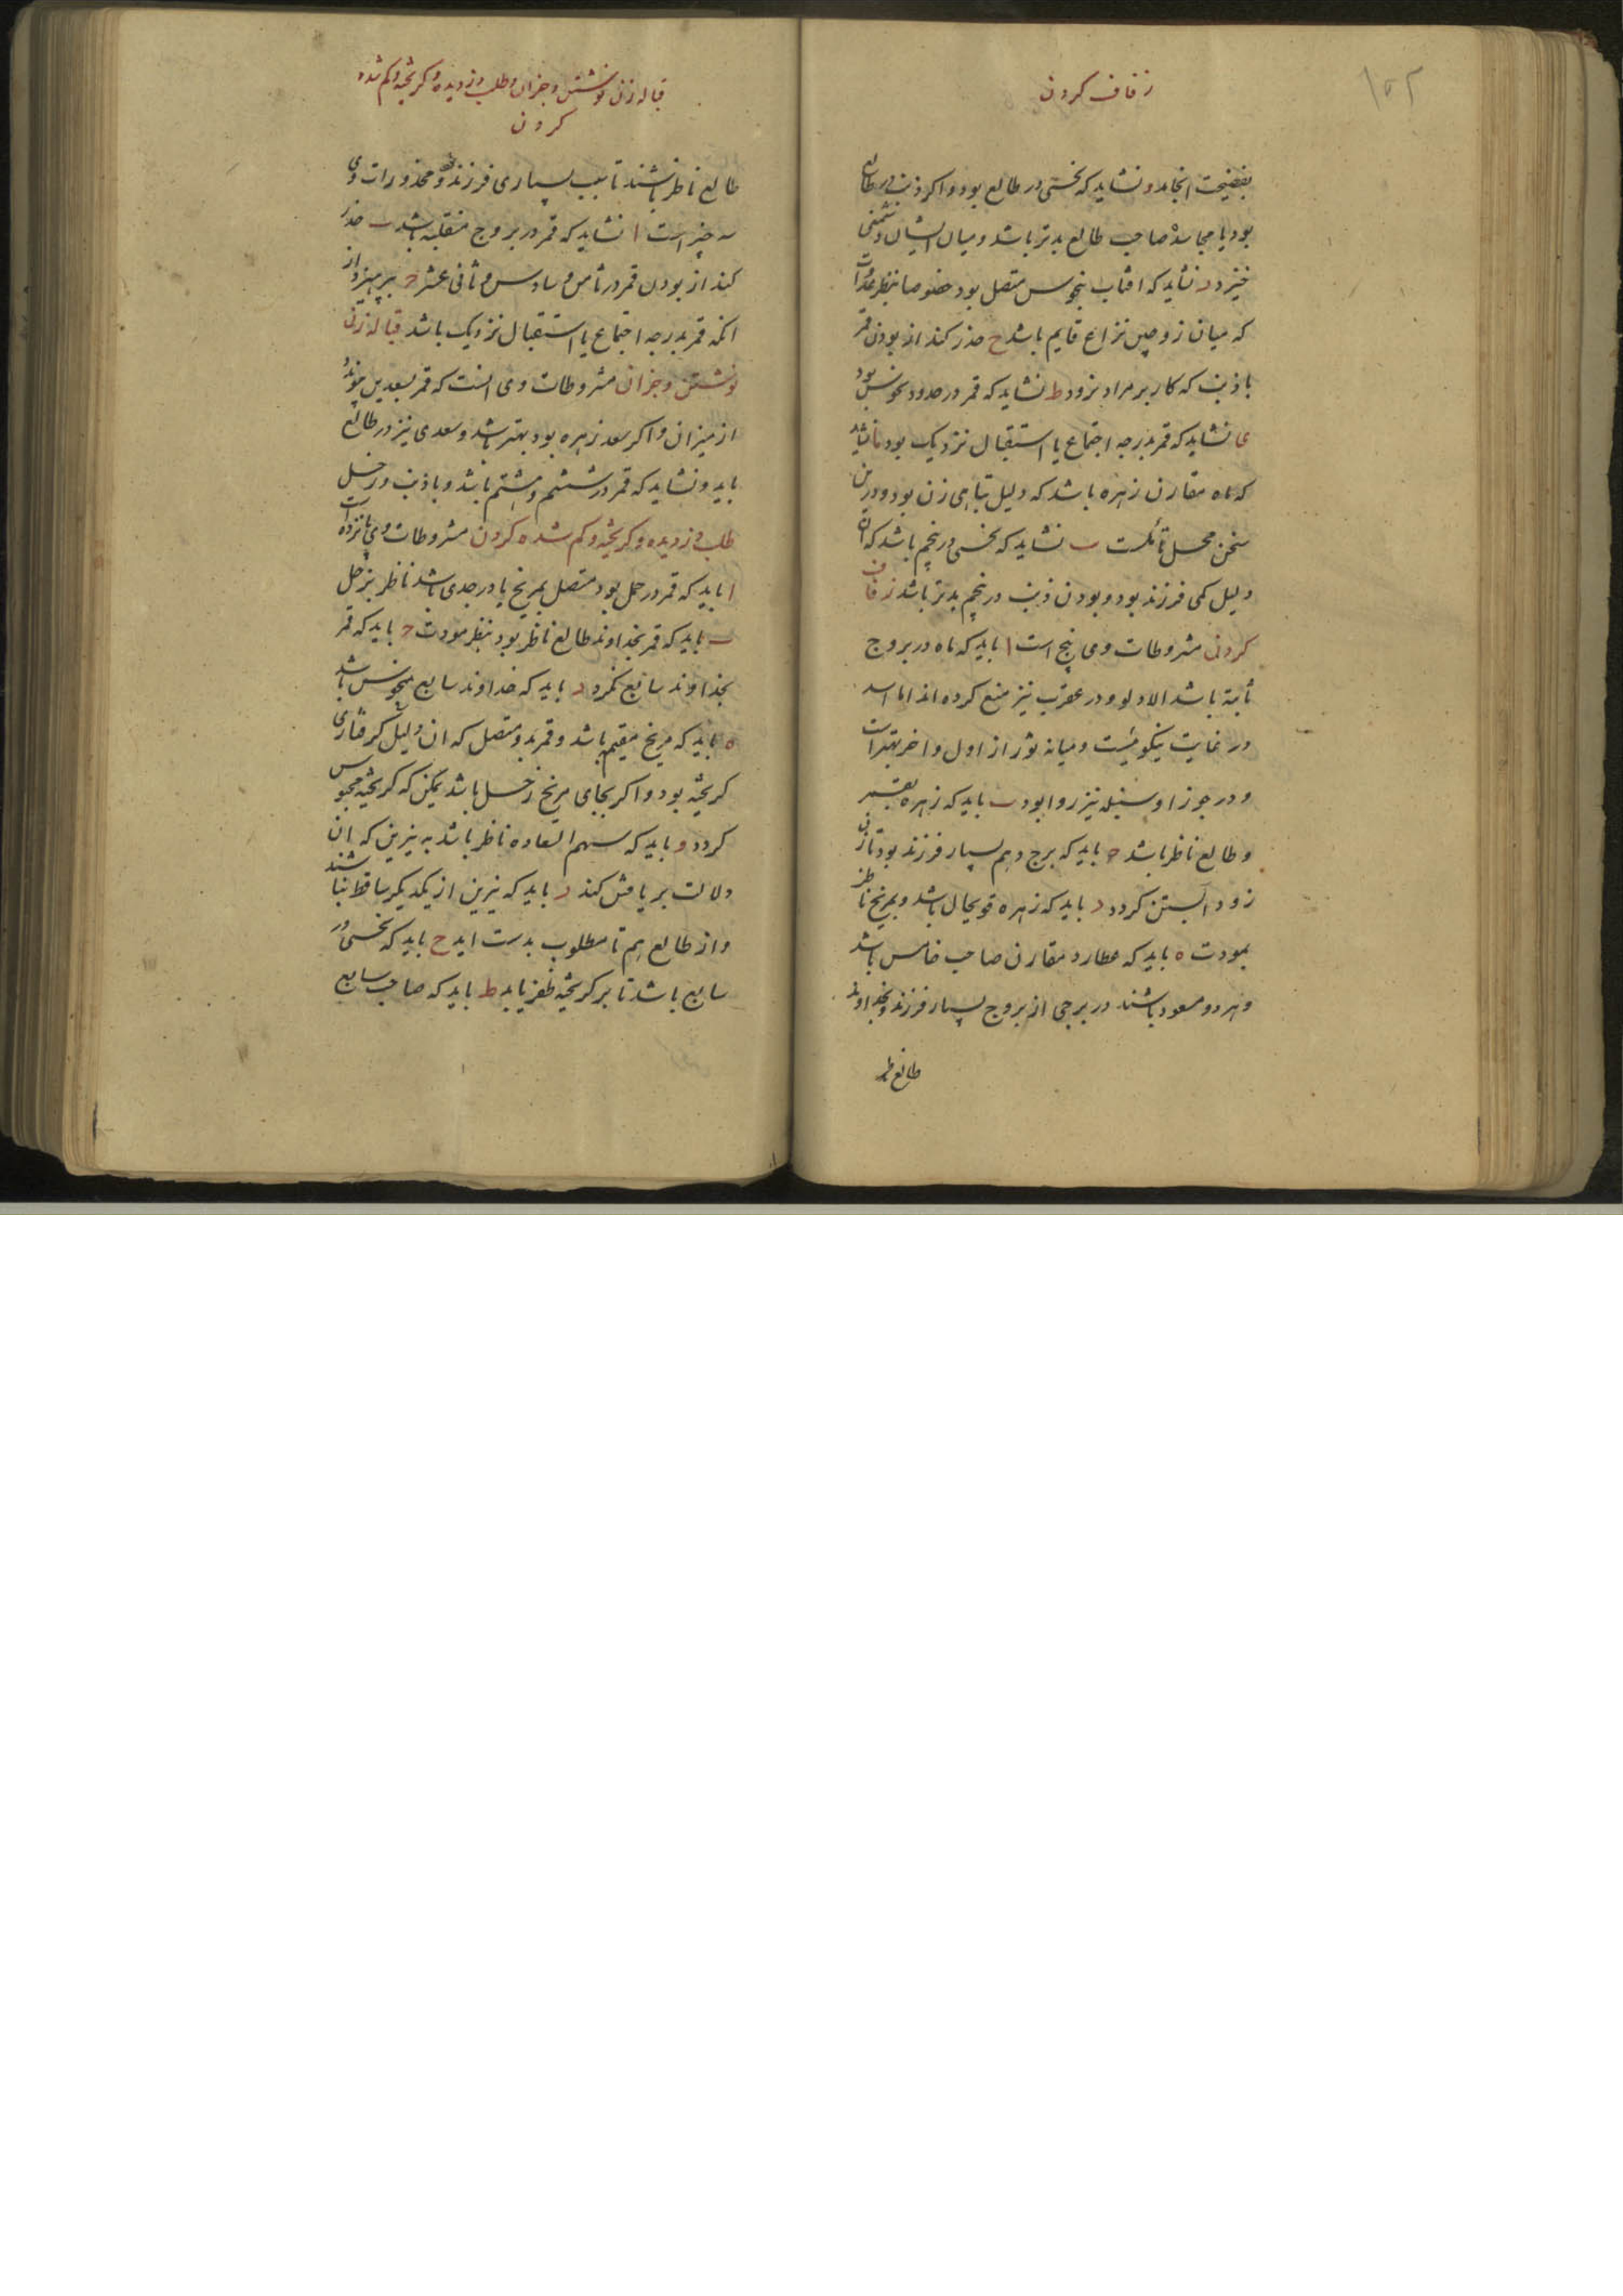 ۱۵۲
زفاف کردن
بفضیحت انجامد و نشاید که نحسی در طالع بود و اکر ذنب در طالع
بود یا مجاسد صاحب طالع بدتر باشد و میان ایشان دشمنی
خیزد د نشاید که افتاب بنحوس متصل بود خصوصا بنظر عداوت
که میان زوجین نزاع قایم باشد ح حذر کند از بودن قمر
با ذنب که کار بر مراد نرود ط نشاید که قمر در حدود نحوس بود
ی نشاید که قمر بدرجه اجتماع یا استقبال نزدیک بود یا نشاید
که ماه مقارن زهره باشد که دلیل تباهی زن بود و درین
سخن محل تأملست ب نشاید که نحسی در پنجم باشد که آن
دلیل کمی فرزند بود و بودن ذنب در پنجم بدتر باشد زفاف
کردن مشروطات وی پنج است ا باید که ماه در بروج
ثابته باشد الا دلو و در عقرب نیز منع کرده اند اما اسد
در غایت نیکوییست و میانه ثور از اول و اخر بهتر است
و در جوزا و سنبله نیز روا بود ب باید که زهره بقمر
و طالع ناظر باشد ح باید که برج دهم بسیار فرزند بود تا زن
زود ابستن کردد د باید که زهره قویحال باشد و بمریخ ناظر
بمودت ه باید که عطارد مقارن صاحب خامس باشد
و هر دو مسعود باشند در برجی از بروج بسیار فرزند و بخداوند
طالع ناظر
قباله زن نوشتن و جزان و طلب دزدیده و کریخته و کم شده
کردن
طالع ناظر باشند تا سبب بسیاری فرزند بود و محذورات وی
سه چیز است ا نشاید که قمر در بروج منقلبه باشد ب حذر
کند از بودن قمر در ثامن و سادس و ثانی عشر ح بپرهیزد از
انکه قمر بدرجه اجتماع یا استقبال نزدیک باشد قباله زن
نوشتن و جزان مشروطات وی انست که قمر بسعدین پیوندد
از میزان و اکر سعد زهره بود بهتر باشد و سعدی نیز در طالع
باید و نشاید که قمر در ششم و هشتم باشد و با ذنب و زحل
طلب دزدیده و کریخته و کم شده کردن مشروطات وی پانزده است
ا باید که قمر در حمل بود متصل بمریخ یا در جدی باشد ناظر بزحل
ب باید که قمر بخداوند طالع ناظر بود بنظر مودت ح باید که قمر
بخداوند سابع نکرد د باید که خداوند سابع منحوس باشد
ه باید که مریخ مقیم باشد و قمر بدو متصل که ان دلیل کرفتاری
کریخته بود و اکر بجای مریخ زحل باشد یمکن که کریخته محبوس
کردد و باید که سهم السعاده ناظر باشد به نیرین که ان
دلالت بر یافتن کند ز باید که نیرین از یکدیکر ساقط نباشند
و از طالع هم تا مطلوب بدست اید ح باید که نحسی در
سابع باشد تا بر کریخته ظفر یابد ط باید که صاحب سابع